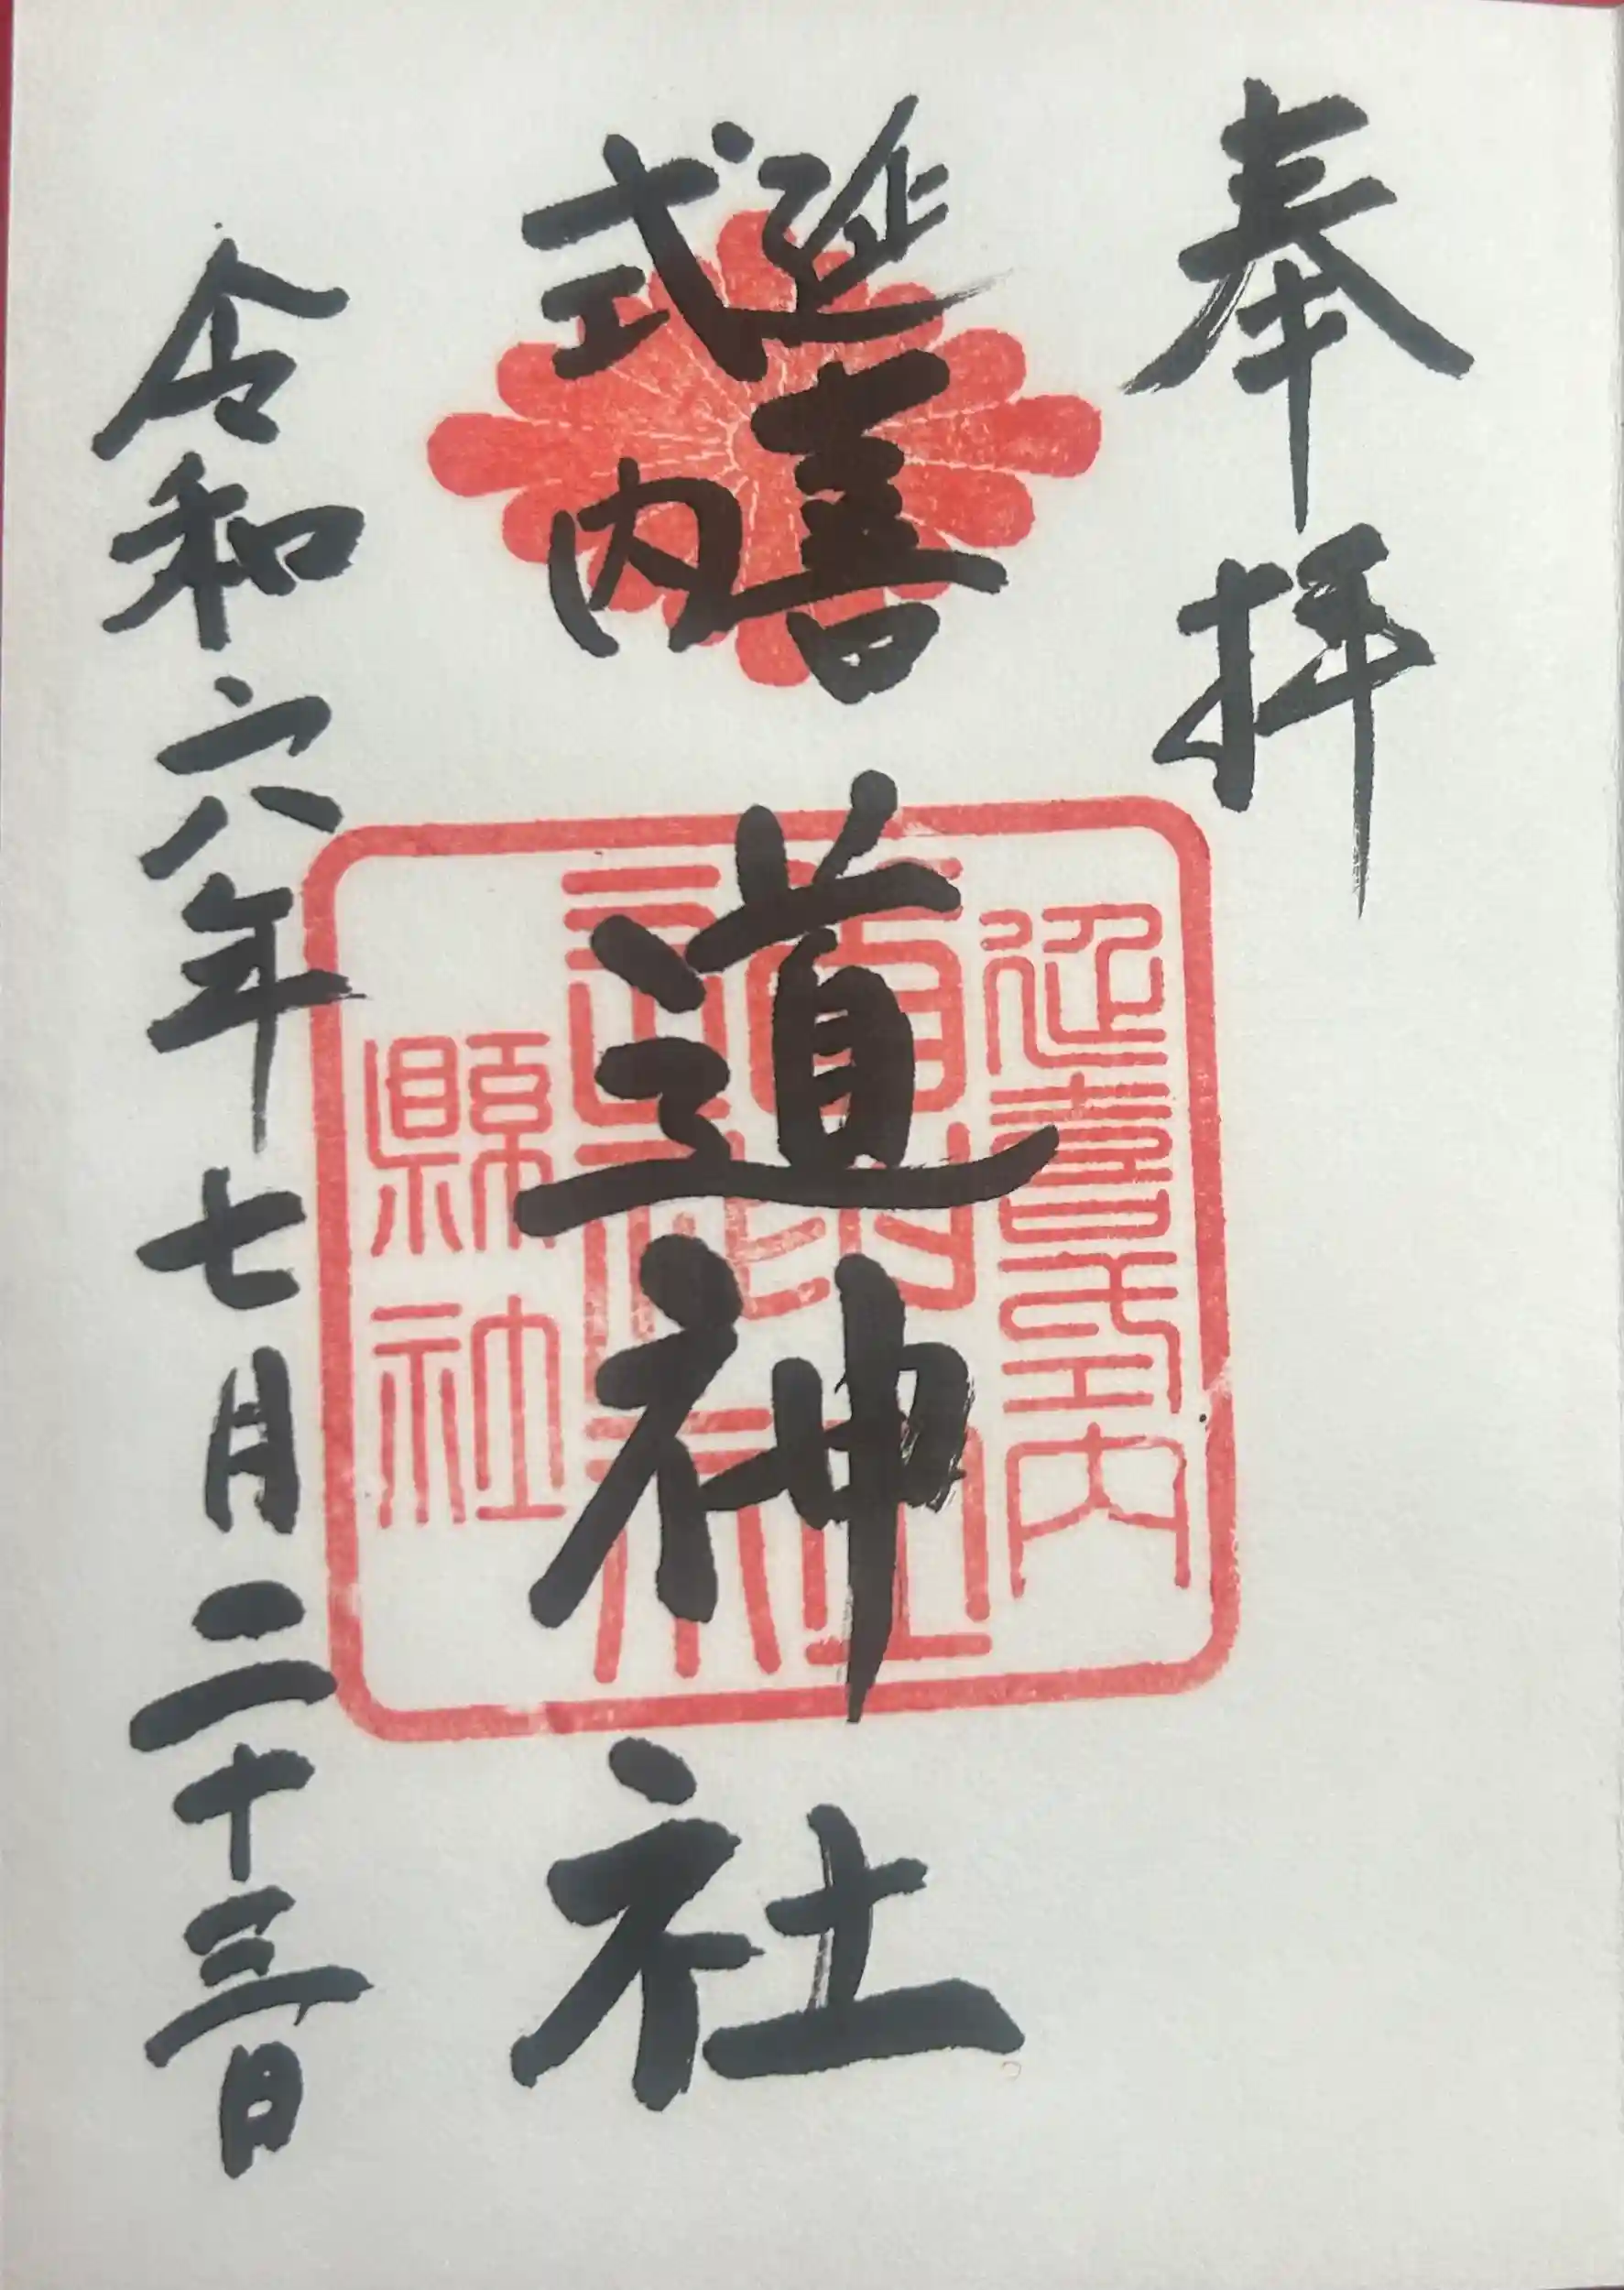 奉拝
延喜
式内
道神社
令和六年七月二十三日
延喜式内
道神社
縣社